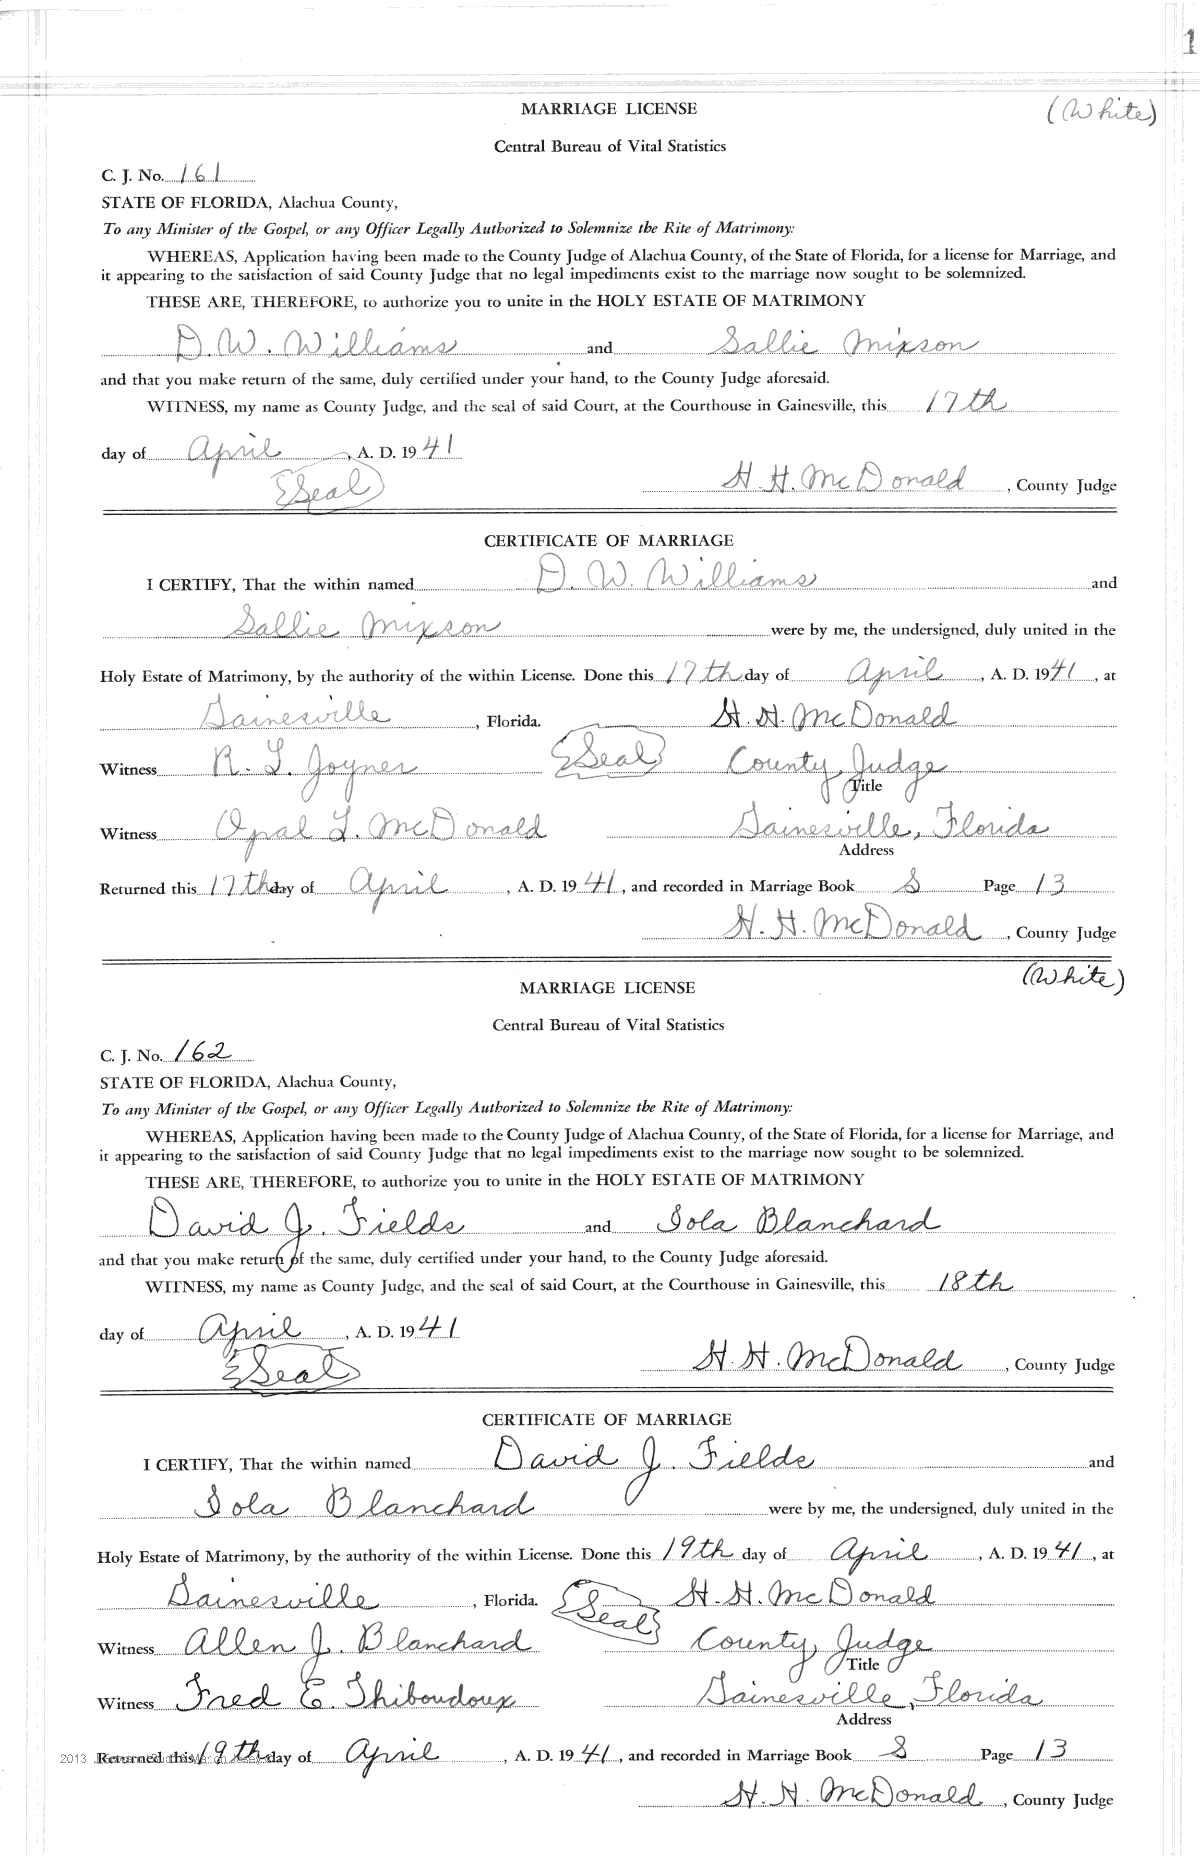 1
MARRIAGE LICENSE (White)
Central Bureau of Vital Statistics
C. J. No. 161
STATE OF FLORIDA, Alachua County,
To any Minister of the Gospel, or any Officer Legally Authorized to Solemnize the Rite of Matrimony:
WHEREAS, Application having been made to the County Judge of Alachua County, of the State of Florida, for a license for Marriage, and
it appearing to the satisfaction of said County Judge that no legal impediments exist to the marriage now sought to be solemnized.
THESE ARE, THEREFORE, to authorize you to unite in the HOLY ESTATE OF MATRIMONY
D. W. Williams and Sallie Mixson
and that you make return of the same, duly certified under your hand, to the County Judge aforesaid.
WITNESS, my name as County Judge, and the seal of said Court, at the Courthouse in Gainesville, this 17th
day of April, A. D. 1941
(Seal) H. H. McDonald, County Judge
CERTIFICATE OF MARRIAGE
I CERTIFY, That the within named D. W. Williams and
Sallie Mixson were by me, the undersigned, duly united in the
Holy Estate of Matrimony, by the authority of the within License. Done this 17th day of April, A. D. 1941, at
Gainesville, Florida. H. H. McDonald
Witness R. L. Joyner (Seal) County Judge
Title
Witness Opal L. McDonald Gainesville, Florida
Address
Returned this 17th day of April, A. D. 1941, and recorded in Marriage Book S Page 13
H. H. McDonald, County Judge
MARRIAGE LICENSE (White)
Central Bureau of Vital Statistics
C. J. No. 162
STATE OF FLORIDA, Alachua County,
To any Minister of the Gospel, or any Officer Legally Authorized to Solemnize the Rite of Matrimony:
WHEREAS, Application having been made to the County Judge of Alachua County, of the State of Florida, for a license for Marriage, and
it appearing to the satisfaction of said County Judge that no legal impediments exist to the marriage now sought to be solemnized.
THESE ARE, THEREFORE, to authorize you to unite in the HOLY ESTATE OF MATRIMONY
David J. Fields and Iola Blanchard
and that you make return of the same, duly certified under your hand, to the County Judge aforesaid.
WITNESS, my name as County Judge, and the seal of said Court, at the Courthouse in Gainesville, this 18th
day of April, A. D. 1941
(Seal) H. H. McDonald, County Judge
CERTIFICATE OF MARRIAGE
I CERTIFY, That the within named David J. Fields and
Iola Blanchard were by me, the undersigned, duly united in the
Holy Estate of Matrimony, by the authority of the within License. Done this 19th day of April, A. D. 1941, at
Gainesville, Florida. (Seal) H. H. McDonald
Witness Allen J. Blanchard County Judge
Title
Witness Fred E. Thiboudoux Gainesville, Florida
Address
2013 Returned this 19th day of April, A. D. 1941, and recorded in Marriage Book S Page 13
H. H. McDonald, County Judge